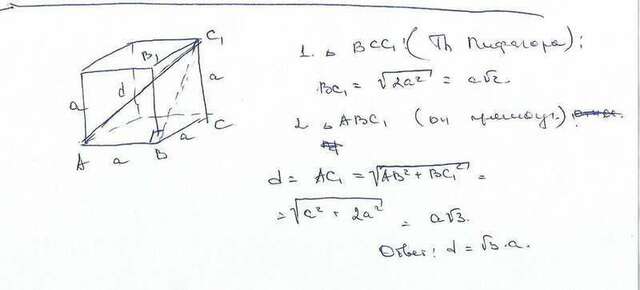 C₁
B₁
a
d
a
C
a
A
a
B
1. △ BCC₁: (Th Пифагора):
BC₁ = √2a² = a√2.
2. △ ABC₁ (он прямоуг.)
d = AC₁ = √AB² + BC₁² =
= √a² + 2a² = a√3.
Ответ: d = √3·a.